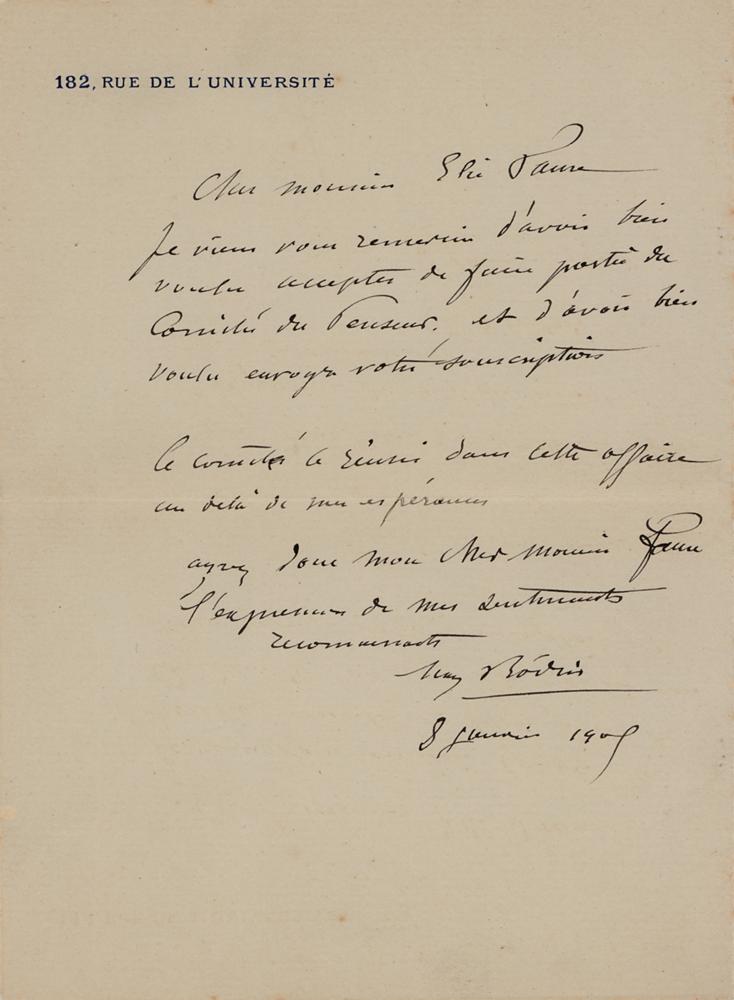 182, RUE DE L'UNIVERSITÉ
Cher monsieur Elie Faure
Je viens vous remercier d'avoir bien
voulu accepter de faire partie du
Comité du Penseur. et d'avoir bien
voulu envoyer votre souscription
le comité a réussi dans cette affaire
au delà de mes espérances
ayez donc mon cher monsieur Faure
l'expression de mes sentiments
reconnaissants
Aug Rodin
8 janvier 1905